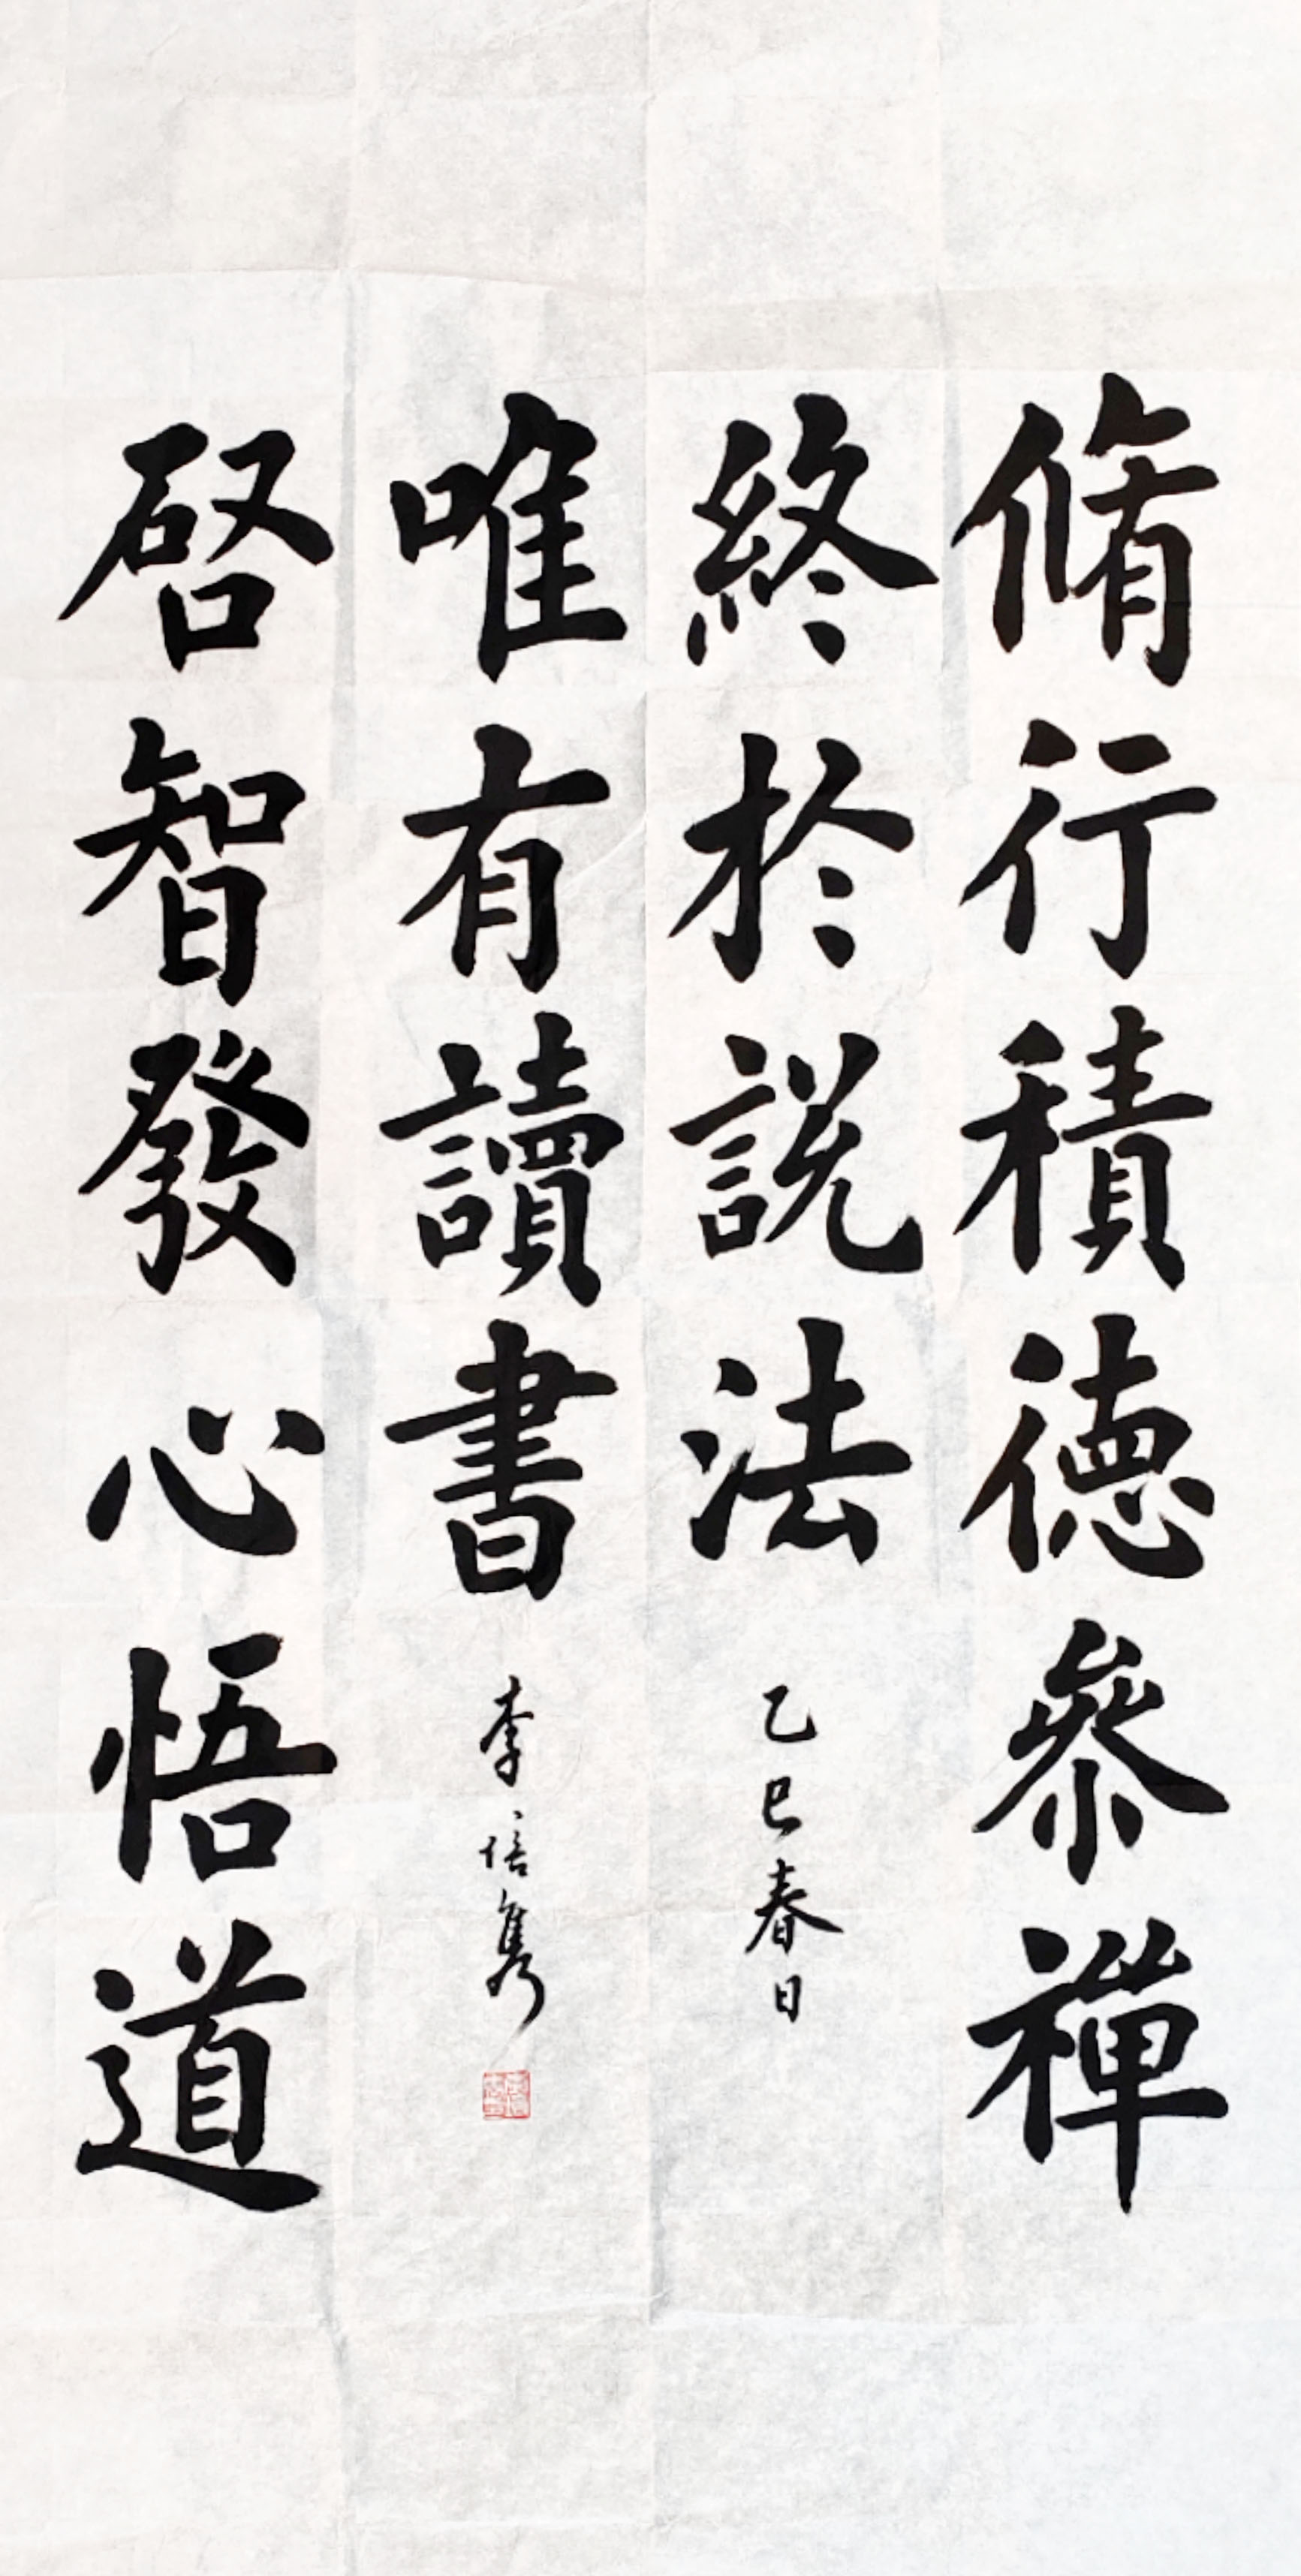 脩行積德叅禪
終於說法
乙巳春日
唯有讀書
李培隽
啓智發心悟道